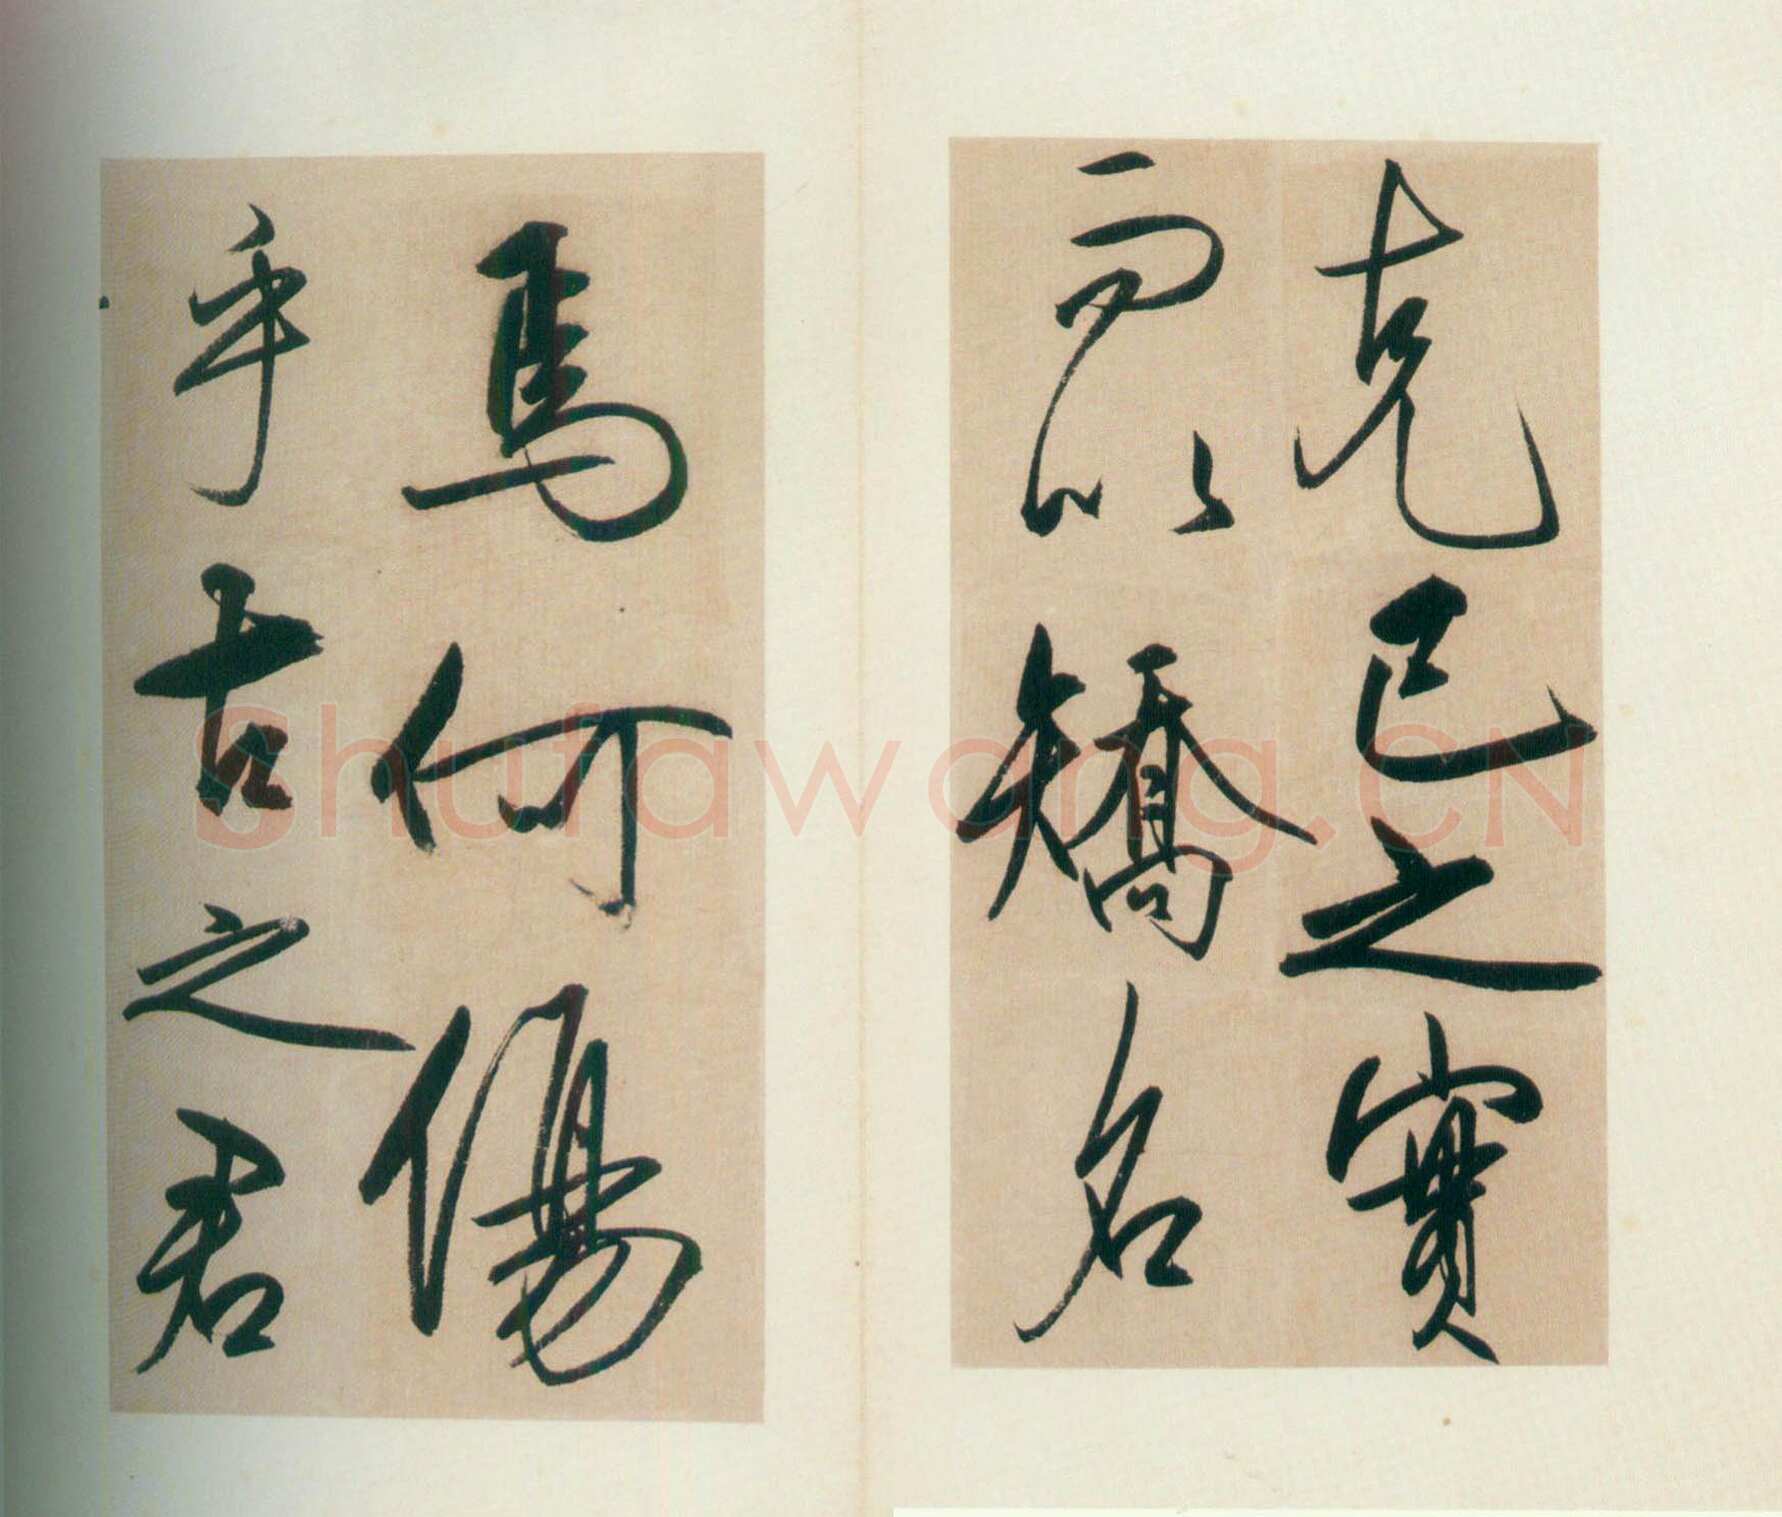 克己之實
而以矯名
焉何傷
乎古之君
Shufawang.CN